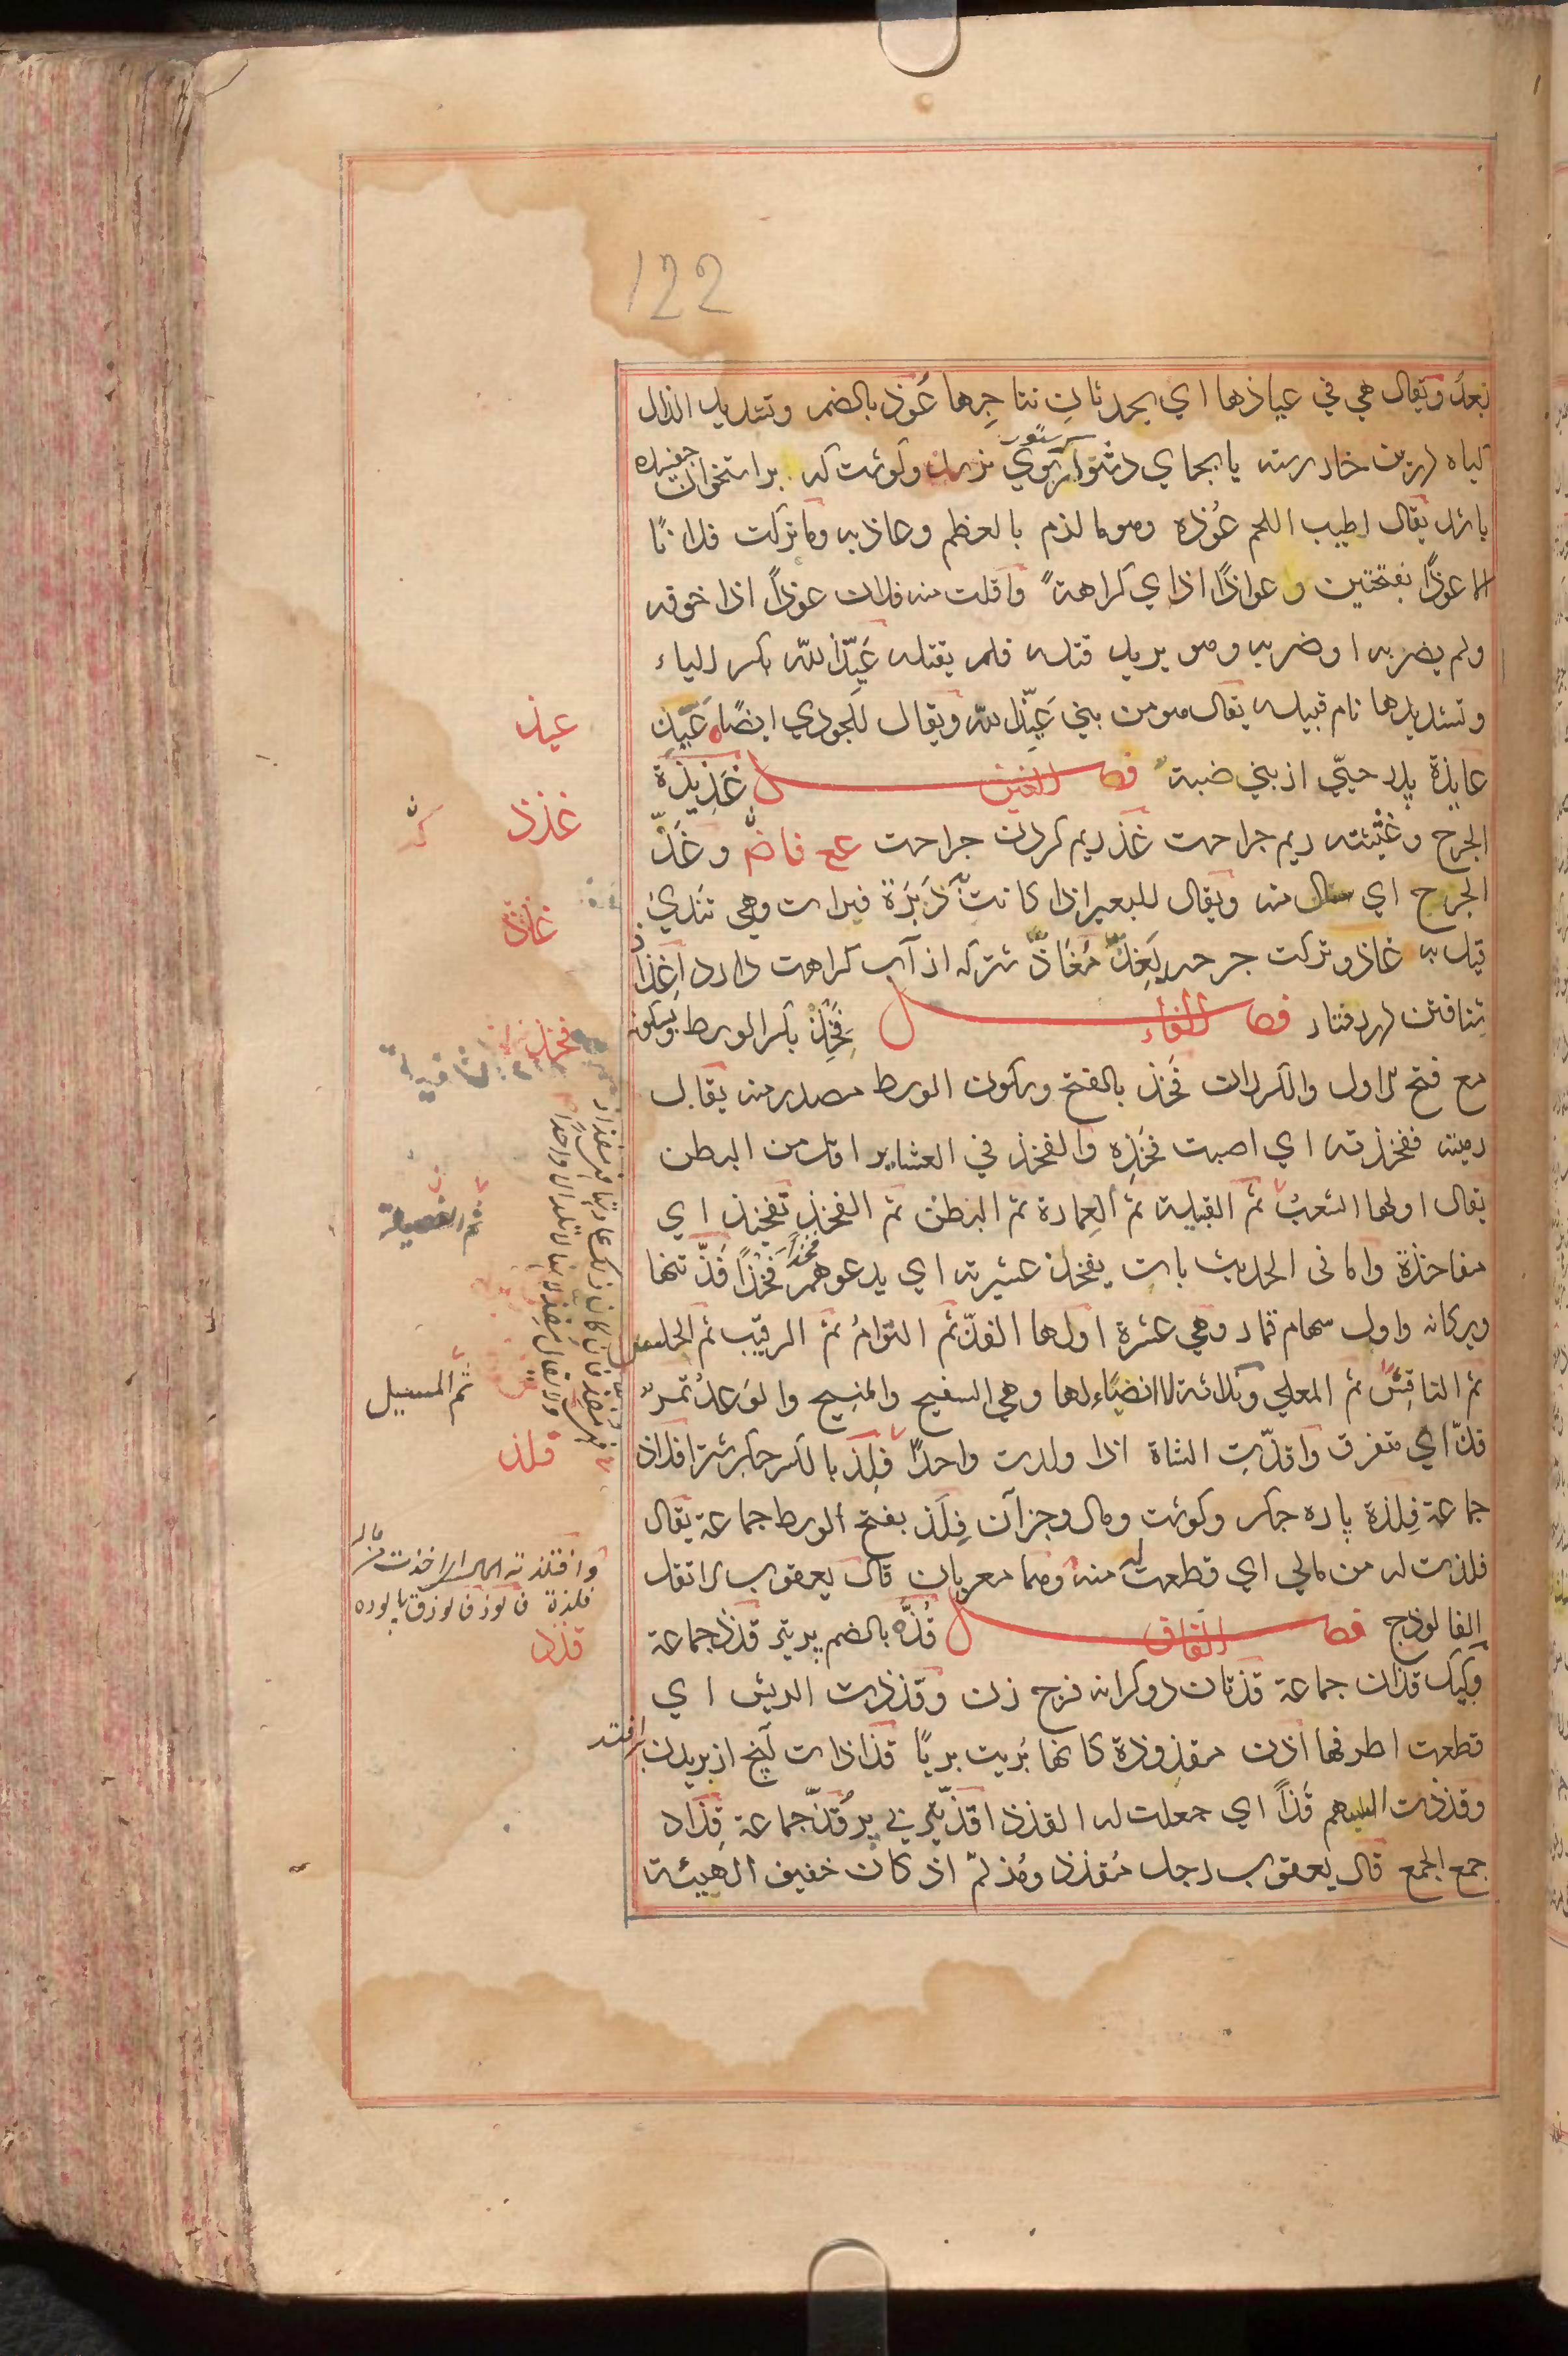 122
بَعدُ ويقال هي في عياذها اي بحدثانِ نتاجِها عُوّذ بالضم وتشديد الذال
كياه در بن خار رسته يا بجاي دشتوار بوي نرسد وكوشت كه بر استخوان جفسيده
باشد يقال اطيب اللحم عُوّذه وهو ما لذم بالعظم وعاذ به وما تركت فلانًا
الا عوذًا بفتحتين وعواذًا اذا اي كراهةً وافلت منه فلان عوذًا اذا خوفه
ولم يضربه او ضربه وهو يريد قتله فلم يقتله عَيِّذ الله بكسر الياء
وتشديدها نام قبيله يقال هو من بني عَيِّذ الله ويقال للجودي ايضًا عَيِّذ
عايذة پدر حيّي از بني ضبة فصل الغين غَذِيذة
الجرح وغثيثته ريم جراحت غذ ريم كردن جراحت مع فاض وغَذّ
الجرح اي سال منه ويقال للبعير اذا كانت به دَبَرَة فبرات وهي تندي
قيل به غاذ وتركت جرحه يَغِذّ مُغَاذّ شتر كه از آب كراهت دارد اغذاذ
شتافتن در رفتار فصل الفاء فَخِذ بكسر الوسط وسكونه
مع فتح الاول والكسر ران فَخذ بالفتح وسكون الوسط مصدر منه يقال
رميته ففخذته اي اصبت فَخِذه والفخذ في العشاير اقل من البطن
يقال اولها الشعبُ ثم القبيلة ثم العِمارة ثم البطن ثم الفخذ تفخيذ اي
مفاخذة واما في الحديث بات يفخذ عشيرته اي يدعوهم فَخْذًا فَخْذًا فَذّ تنها
ويركانه واول سهام قمار وهي عشرة اولها الفذّ ثم التوامُ ثم الرقيب ثم الحلس
ثم النافِسُ ثم المعلي وثلاثة لا انصباء لها وهي السفيح والمنيح والوَغدُ تمرٌ
فذّ اي متفرق وافذّتِ الشاة اذا ولدت واحدًا فِلذ بالكسر جكر شتر افلاذ
جماعة فِلذة پاره جكر وكوشت ومال وجز آن فِلَذ بفتح الوسط جماعة يقال
فلذت له من مالي اي قطعت له منه وهما معربان قال يعقوب لا تقل
الفالوذج فصل القاف قُذّه بالضم پر تير قُذَذ جماعة
وكيك قذان جماعة قذتان دو كرانه فرج زن وقذذت الريش اي
قطعت اطرفها اذن مقذوذة كانها بُريت بريًا قذاذات آنچ از بريدن برافتد
وقذذت السهم قَذًّا اي جعلت له القذذ اقذّ تير بي پر قُذّ جماعة قِذاذ
جمع الجمع قال يعقوب رجل مُقذذ ومُذلّم اذ كان خفيف الهيئة
عيذ
غذذ
غاذ
فخذ
ثم الفصيلة
ثم المسبل
فلذ
وافتلذته المال اي اخذت من ماله
فلذة فالوذ فالوذق پالوده
قذذ